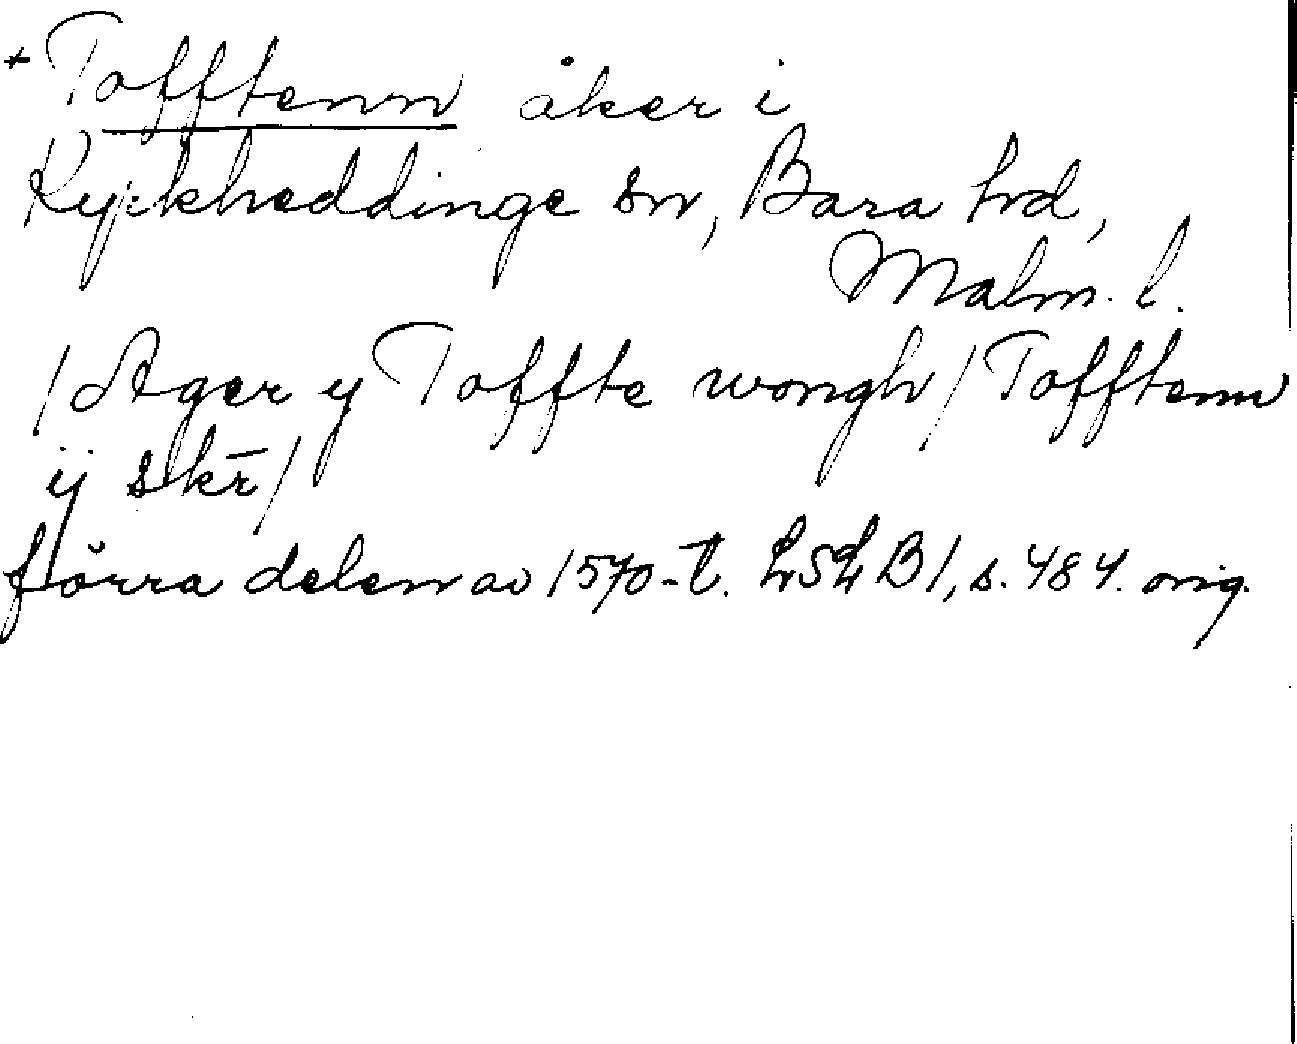 + Tofftenn åker i
Kyrkheddinge sn, Bara hd,
Malm. l.
/Ager y Toffte wongh/Tofftenn
ij skr̄/
förra delen av 1570-t. LSL B1, s. 484. orig.